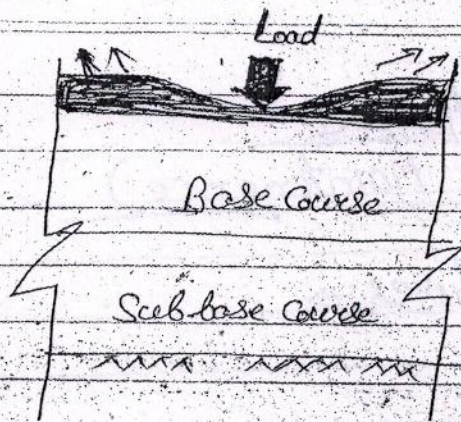 Load
Base Course
Sub base Course